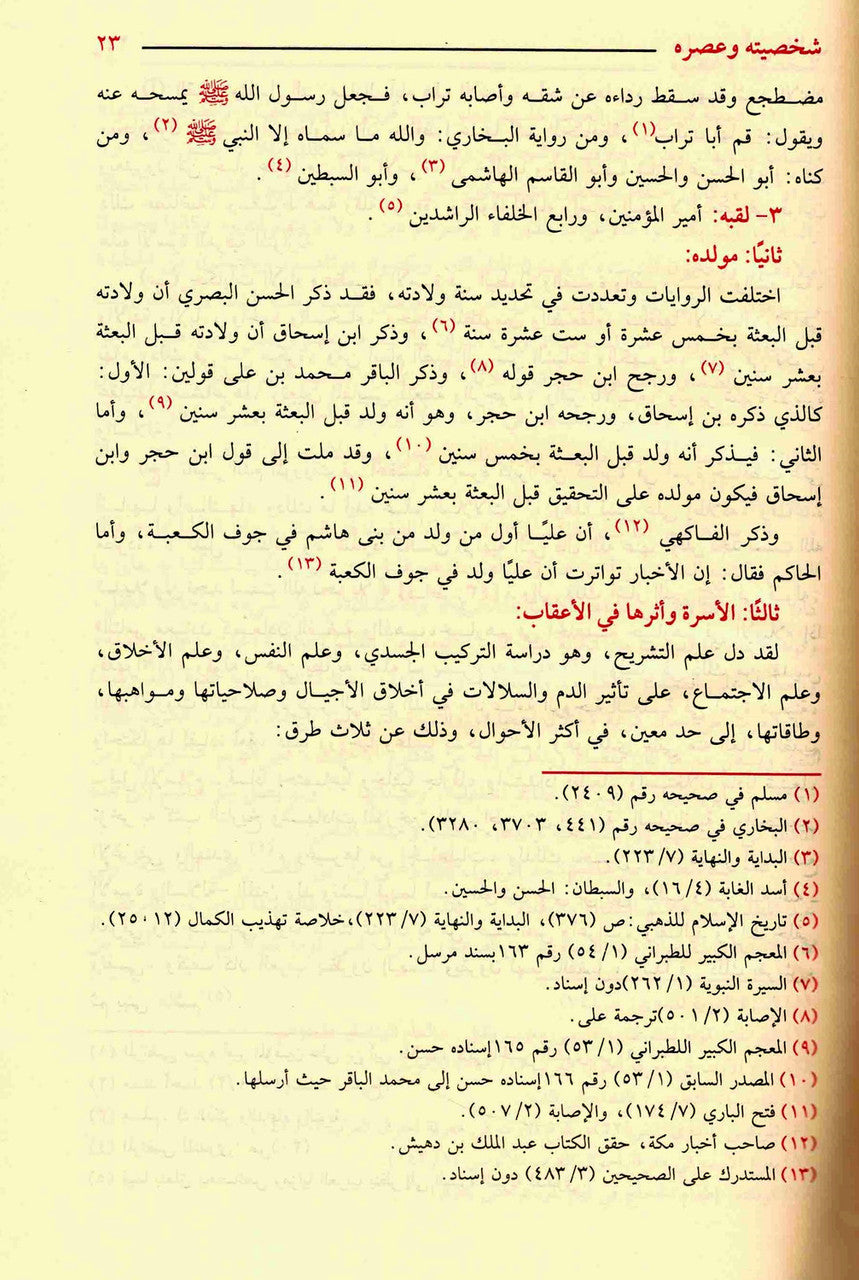 شخصيته وعصره ٢٣
مضطجع وقد سقط رداءه عن شقه وأصابه تراب، فجعل رسول الله ﷺ يمسحه عنه
ويقول: قم أبا تراب(١)، ومن رواية البخاري: والله ما سماه إلا النبي ﷺ (٢)، ومن
كناه: أبو الحسن والحسين وأبو القاسم الهاشمى (٣)، وأبو السبطين (٤).
٣- لقبه: أمير المؤمنين، ورابع الخلفاء الراشدين (٥).
ثانيًا: مولده:
اختلفت الروايات وتعددت في تحديد سنة ولادته، فقد ذكر الحسن البصري أن ولادته
قبل البعثة بخمس عشرة أو ست عشرة سنة (٦)، وذكر ابن إسحاق أن ولادته قبل البعثة
بعشر سنين (٧)، ورجح ابن حجر قوله (٨)، وذكر الباقر محمد بن على قولين: الأول:
كالذي ذكره بن إسحاق، ورجحه ابن حجر، وهو أنه ولد قبل البعثة بعشر سنين (٩)، وأما
الثاني: فيذكر أنه ولد قبل البعثة بخمس سنين (١٠)، وقد ملت إلى قول ابن حجر وابن
إسحاق فيكون مولده على التحقيق قبل البعثة بعشر سنين (١١).
وذكر الفاكهي (١٢)، أن عليًا أول من ولد من بنى هاشم في جوف الكعبة، وأما
الحاكم فقال: إن الأخبار تواترت أن عليًا ولد في جوف الكعبة (١٣).
ثالثًا: الأسرة وأثرها في الأعقاب:
لقد دل علم التشريح، وهو دراسة التركيب الجسدي، وعلم النفس، وعلم الأخلاق،
وعلم الاجتماع، على تأثير الدم والسلالات في أخلاق الأجيال وصلاحياتها ومواهبها،
وطاقاتها، إلى حد معين، في أكثر الأحوال، وذلك عن ثلاث طرق:
(١) مسلم في صحيحه رقم (٢٤٠٩).
(٢) البخاري في صحيحه رقم (٤٤١، ٣٧٠٣، ٣٢٨٠).
(٣) البداية والنهاية (٧/ ٢٢٣).
(٤) أسد الغابة (٤/ ١٦)، والسبطان: الحسن والحسين.
(٥) تاريخ الإسلام للذهبي:ص (٣٧٦)، البداية والنهاية (٧/ ٢٢٣)،خلاصة تهذيب الكمال (٢٥٠١٢).
(٦) المعجم الكبير للطبراني (١/ ٥٤) رقم ١٦٣بسند مرسل.
(٧) السيرة النبوية (١/ ٢٦٢)دون إسناد.
(٨) الإصابة (٢/ ٥٠١)ترجمة على.
(٩) المعجم الكبير اللطبراني (١/ ٥٣) رقم ١٦٥إسناده حسن.
(١٠) المصدر السابق (١/ ٥٣) رقم ١٦٦إسناده حسن إلى محمد الباقر حيث أرسلها.
(١١) فتح الباري (٧/ ١٧٤)، والإصابة (٢/ ٥٠٧).
(١٢) صاحب أخبار مكة، حقق الكتاب عبد الملك بن دهيش.
(١٣) المستدرك على الصحيحين (٣/ ٤٨٣) دون إسناد.